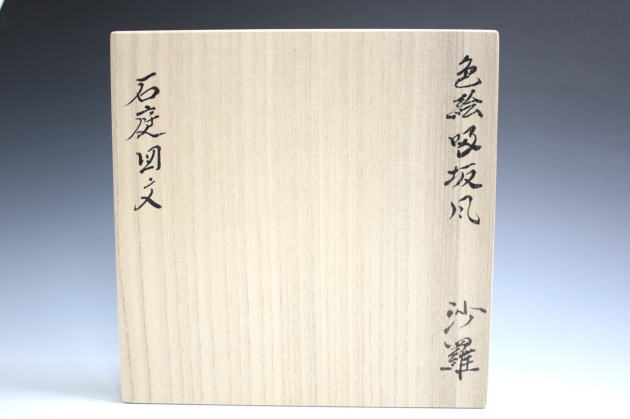 色絵吸坂風
沙羅
石庭図文